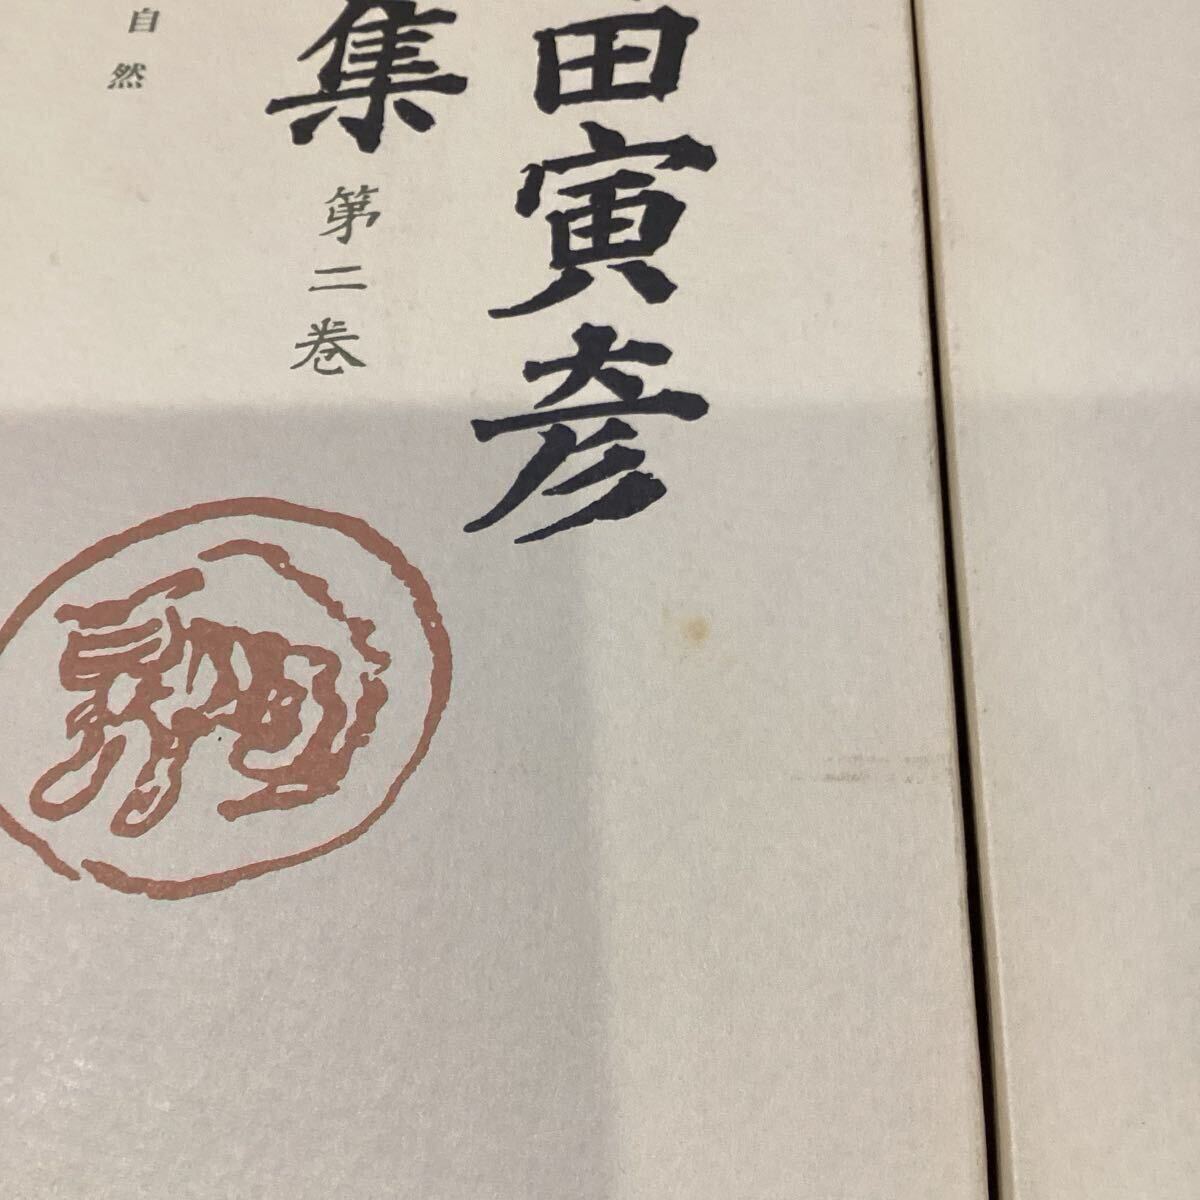 田寅彦
集 第二巻
自然